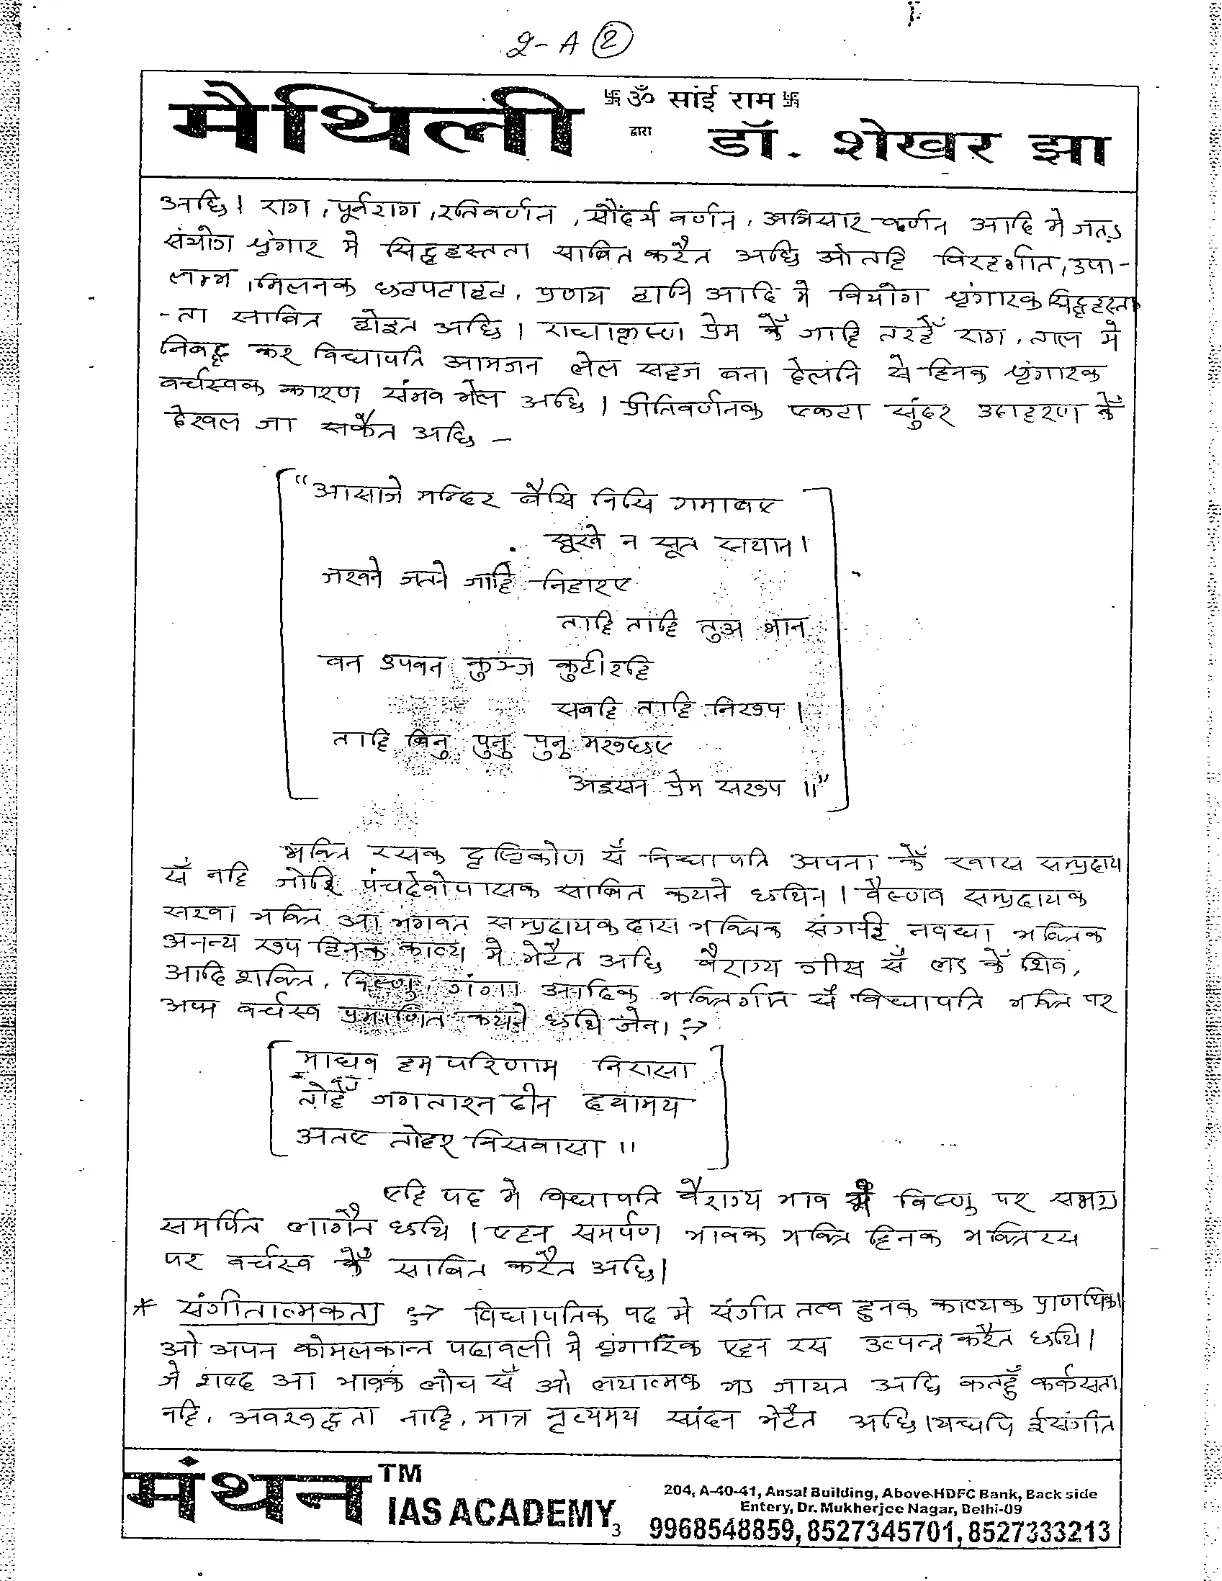 2-A 2
मैथिली
卐ॐ सांई राम卐
द्वारा
डॉ. शेखर झा
अछि। राग, पूर्वराग, रतिवर्णन, सौंदर्य वर्णन, अभिसार वर्णन आदि मे जतऽ
संयोग श्रृंगार मे सिद्धहस्तता साबित करैत अछि ओतहि विरहगीत, उपा-
लम्भ, मिलनक छटपटाहट, प्रणय हानि आदि मे वियोग श्रृंगारक सिद्धहस्त
-ता साबित होइत अछि। राधाकृष्ण प्रेम केँ जाहि तरहेँ राग, ताल मे
निबद्ध कर विद्यापति आमजन लेल सहज बना देलनि से हिनक श्रृंगारक
वर्चस्वक कारण संभव भेल अछि। प्रीतिवर्णनक एकटा सुंदर उदाहरण केँ
देखल जा सकैत अछि -
"आसाजे मन्दिर बैसि निसि गमाबए
सूखे न सूत सयान।
जखने जतने जाहि निहारए
ताहि ताहि तुअ भान
वन उपवन कुञ्ज कुटीरहि
सबहि ताहि निरूप।
ताहि बिनु पुनु पुनु मरूछए
अइसन प्रेम सरूप॥"
भक्ति रसक दृष्टिकोण सँ विद्यापति अपना केँ खास सम्प्रदाय
सँ नहि जोड़ि पंचदेवोपासक साबित कयने छथिन। वैष्णव सम्प्रदायक
सखा भक्ति आ भगवत सम्प्रदायक दास भक्तिक संगहि नवधा भक्तिक
अनन्य रूप हिनक काव्य मे भेटैत अछि वैराग्य गीत सँ लऽ केँ शिव,
आदि शक्ति, विष्णु, गंगा आदिक भक्तिगीत सँ विद्यापति भक्ति पर
अपन वर्चस्व प्रमाणित कयने छथि जेना :→
माधव हम परिणाम निरासा
तोहेँ जगतारन दीन दयामय
अतए तोहर बिसवासा॥
एहि पद मे विद्यापति वैराग्य भाव सँ विष्णु पर समग्र
समर्पित लागैत छथि। एहन समर्पण भावक भक्ति हिनक भक्तिरस
पर वर्चस्व केँ साबित करैत अछि।
* संगीतात्मकता :→ विद्यापतिक पद मे संगीत तत्व हुनक काव्यक प्राण थिक।
ओ अपन कोमलकान्त पदावली मे श्रृंगारिक एहन रस उत्पन्न करैत छथि।
जे शब्द आ भावक लोच सँ ओ लयात्मक भऽ जायत अछि कतहुँ कर्कसता
नहि, अवरुद्धता नाहि, मात्र नृत्यमय स्पंदन भेटैत अछि। यद्यपि ई संगीत
मंथन TM
IAS ACADEMY
3
204, A-40-41, Ansal Building, Above HDFC Bank, Back side
Entery, Dr. Mukherjee Nagar, Delhi-09
9968548859, 8527345701, 8527333213